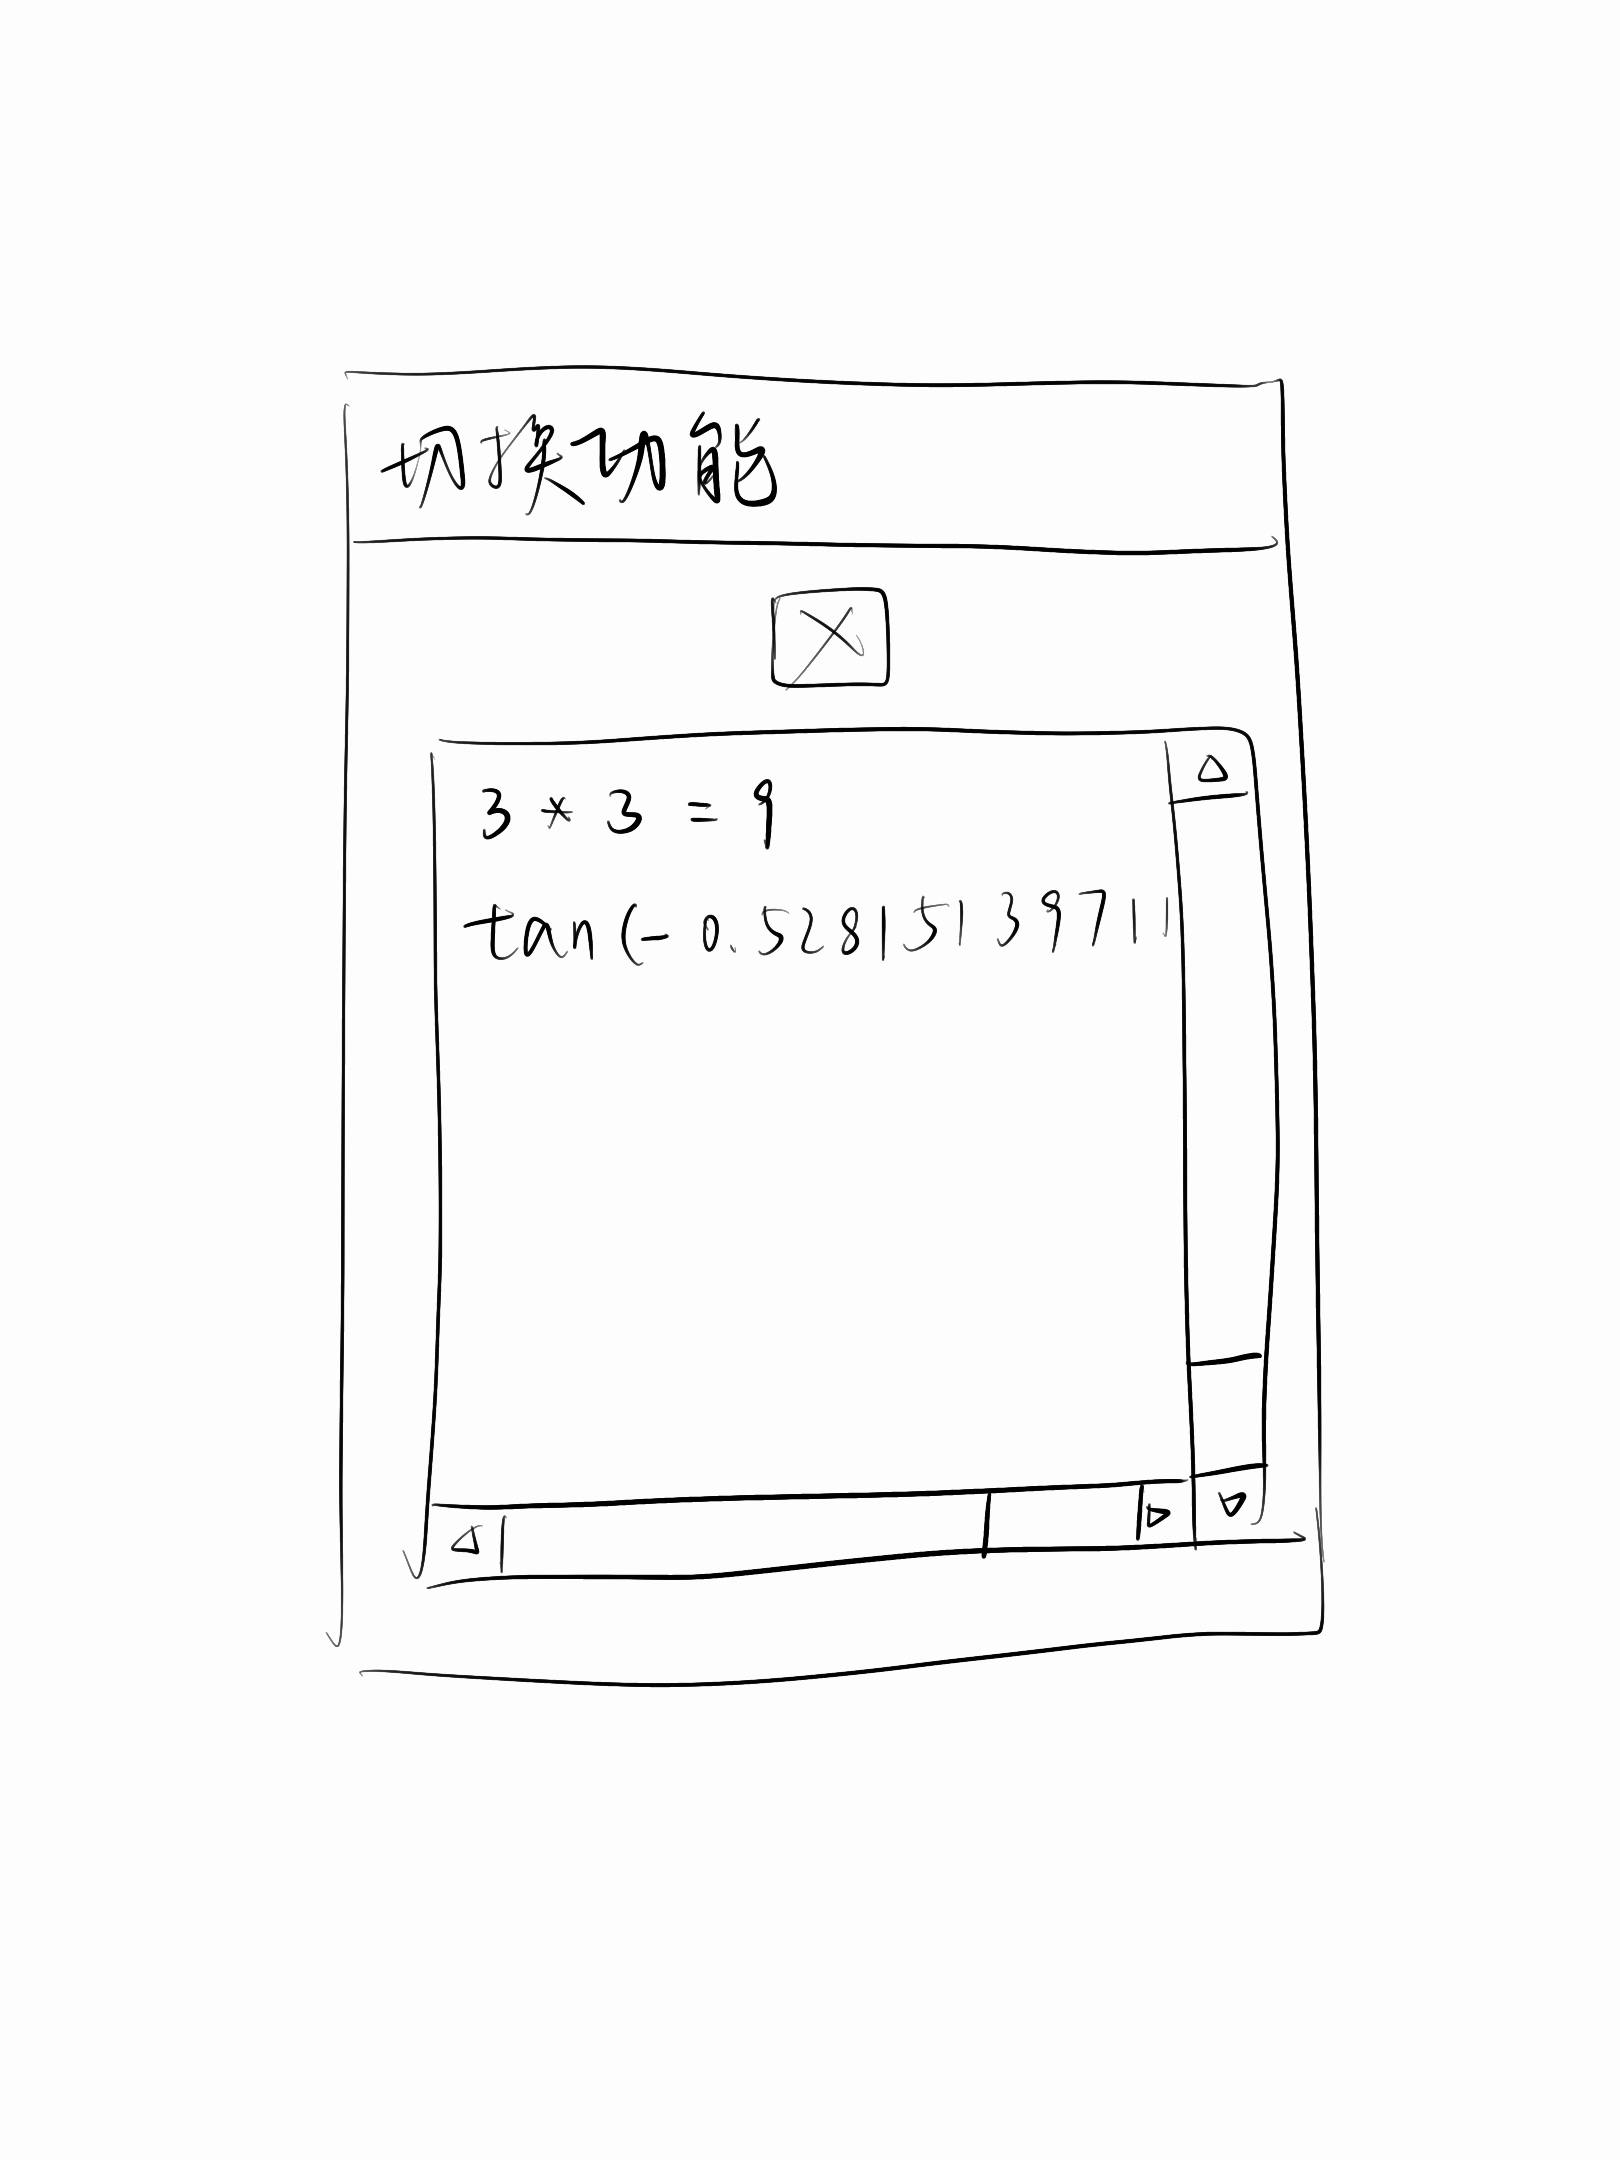 切换功能
X
3 * 3 = 9
tan(-0.52815139711